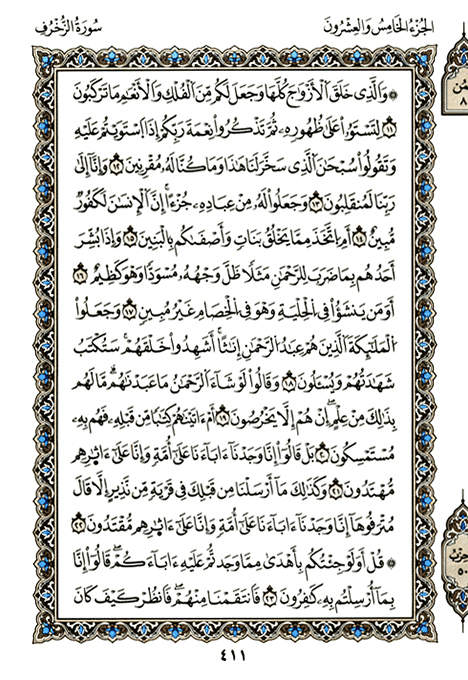 الجُزْءُ الخَامِسُ وَالعِشْرُونَ
سُورَةُ الزُّخْرُفِ
۞ وَالَّذِى خَلَقَ الْأَزْوَٰجَ كُلَّهَا وَجَعَلَ لَكُم مِّنَ الْفُلْكِ وَالْأَنْعَٰمِ مَا تَرْكَبُونَ
١١ لِتَسْتَوُۥاْ عَلَىٰ ظُهُورِهِۦ ثُمَّ تَذْكُرُواْ نِعْمَةَ رَبِّكُمْ إِذَا اسْتَوَيْتُمْ عَلَيْهِ
وَتَقُولُواْ سُبْحَٰنَ الَّذِى سَخَّرَ لَنَا هَٰذَا وَمَا كُنَّا لَهُۥ مُقْرِنِينَ ١٢ وَإِنَّآ إِلَىٰ
رَبِّنَا لَمُنقَلِبُونَ ١٣ وَجَعَلُواْ لَهُۥ مِنْ عِبَادِهِۦ جُزْءًا إِنَّ الْإِنسَٰنَ لَكَفُورٌ
مُّبِينٌ ١٤ أَمِ اتَّخَذَ مِمَّا يَخْلُقُ بَنَاتٍ وَأَصْفَىٰكُم بِالْبَنِينَ ١٥ وَإِذَا بُشِّرَ
أَحَدُهُم بِمَا ضَرَبَ لِلرَّحْمَٰنِ مَثَلًا ظَلَّ وَجْهُهُۥ مُسْوَدًّا وَهْوَ كَظِيمٌ ١٦
أَوَمَن يَنشَؤُاْ فِى الْحِلْيَةِ وَهْوَ فِى الْخِصَامِ غَيْرُ مُبِينٍ ١٧ وَجَعَلُواْ
الْمَلَٰٓئِكَةَ الَّذِينَ هُمْ عِبَٰدُ الرَّحْمَٰنِ إِنَٰثًا أَشَهِدُواْ خَلْقَهُمْ سَتُكْتَبُ
شَهَٰدَتُهُمْ وَيُسْـَٔلُونَ ١٨ وَقَالُواْ لَوْ شَآءَ الرَّحْمَٰنُ مَا عَبَدْنَٰهُم مَّا لَهُم
بِذَٰلِكَ مِنْ عِلْمٍ إِنْ هُمْ إِلَّا يَخْرُصُونَ ١٩ أَمْ ءَاتَيْنَٰهُمْ كِتَٰبًا مِّن قَبْلِهِۦ فَهُم بِهِۦ
مُسْتَمْسِكُونَ ٢٠ بَلْ قَالُوٓاْ إِنَّا وَجَدْنَآ ءَابَآءَنَا عَلَىٰٓ أُمَّةٍ وَإِنَّا عَلَىٰٓ ءَاثَٰرِهِم
مُّهْتَدُونَ ٢١ وَكَذَٰلِكَ مَآ أَرْسَلْنَا مِن قَبْلِكَ فِى قَرْيَةٍ مِّن نَّذِيرٍ إِلَّا قَالَ
مُتْرَفُوهَآ إِنَّا وَجَدْنَآ ءَابَآءَنَا عَلَىٰٓ أُمَّةٍ وَإِنَّا عَلَىٰٓ ءَاثَٰرِهِم مُّقْتَدُونَ ٢٢
۞ قُلْ أَوَلَوْ جِئْتُكُم بِأَهْدَىٰ مِمَّا وَجَدتُّمْ عَلَيْهِ ءَابَآءَكُمْ قَالُوٓاْ إِنَّا
بِمَآ أُرْسِلْتُم بِهِۦ كَٰفِرُونَ ٢٣ فَانتَقَمْنَا مِنْهُمْ فَانظُرْ كَيْفَ كَانَ
٤١١